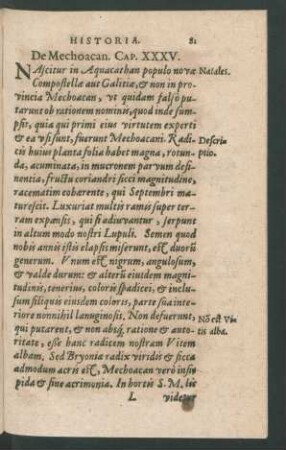 HISTORIA. 81
De Mechoacan. CAP. XXXV.
NAſcitur in Aquacathan populo novæ Natales.
Compoſtellæ aut Galitiæ, & non in pro-
vincia Mechoacan, vt quidam falſò pu-
tarunt ob rationem nominis, quod inde ſum-
pſit, quia qui primi eius virtutem experti
& ea vſi ſunt, fuerunt Mechoacani. Radi- Deſcri-
cis huius planta folia habet magna, rotun- ptio.
da, acuminata, in mucronem parvum deſi-
nentia, fructu coriandri ſicci magnitudine,
racematim cohærente, qui Septembri ma-
tureſcit. Luxuriat multis ramis ſuper ter-
ram expanſis, qui ſi adiuvantur, ſerpunt
in altum modo noſtri Lupuli. Semen quod
nobis annis iſtis elapſis miſerunt, eſt duorũ
generum. Vnum eſt nigrum, anguloſum,
& valde durum: & alterũ eiuſdem magni-
tudinis, tenerius, coloris ſpadicei, & inclu-
ſum ſiliquis eiuſdem coloris, parte ſua inte-
riore nonnihil lanuginoſis. Non defuerunt, Nõ eſt Vi-
qui putarent, & non abſq; ratione & auto- tis alba.
ritate, eſſe hanc radicem noſtram Vitem
albam. Sed Bryoniæ radix viridis & ſicca
admodum acris eſt, Mechoacan verò inſi-
pida & ſine acrimonia. In hortis S. M. hic
L videtur